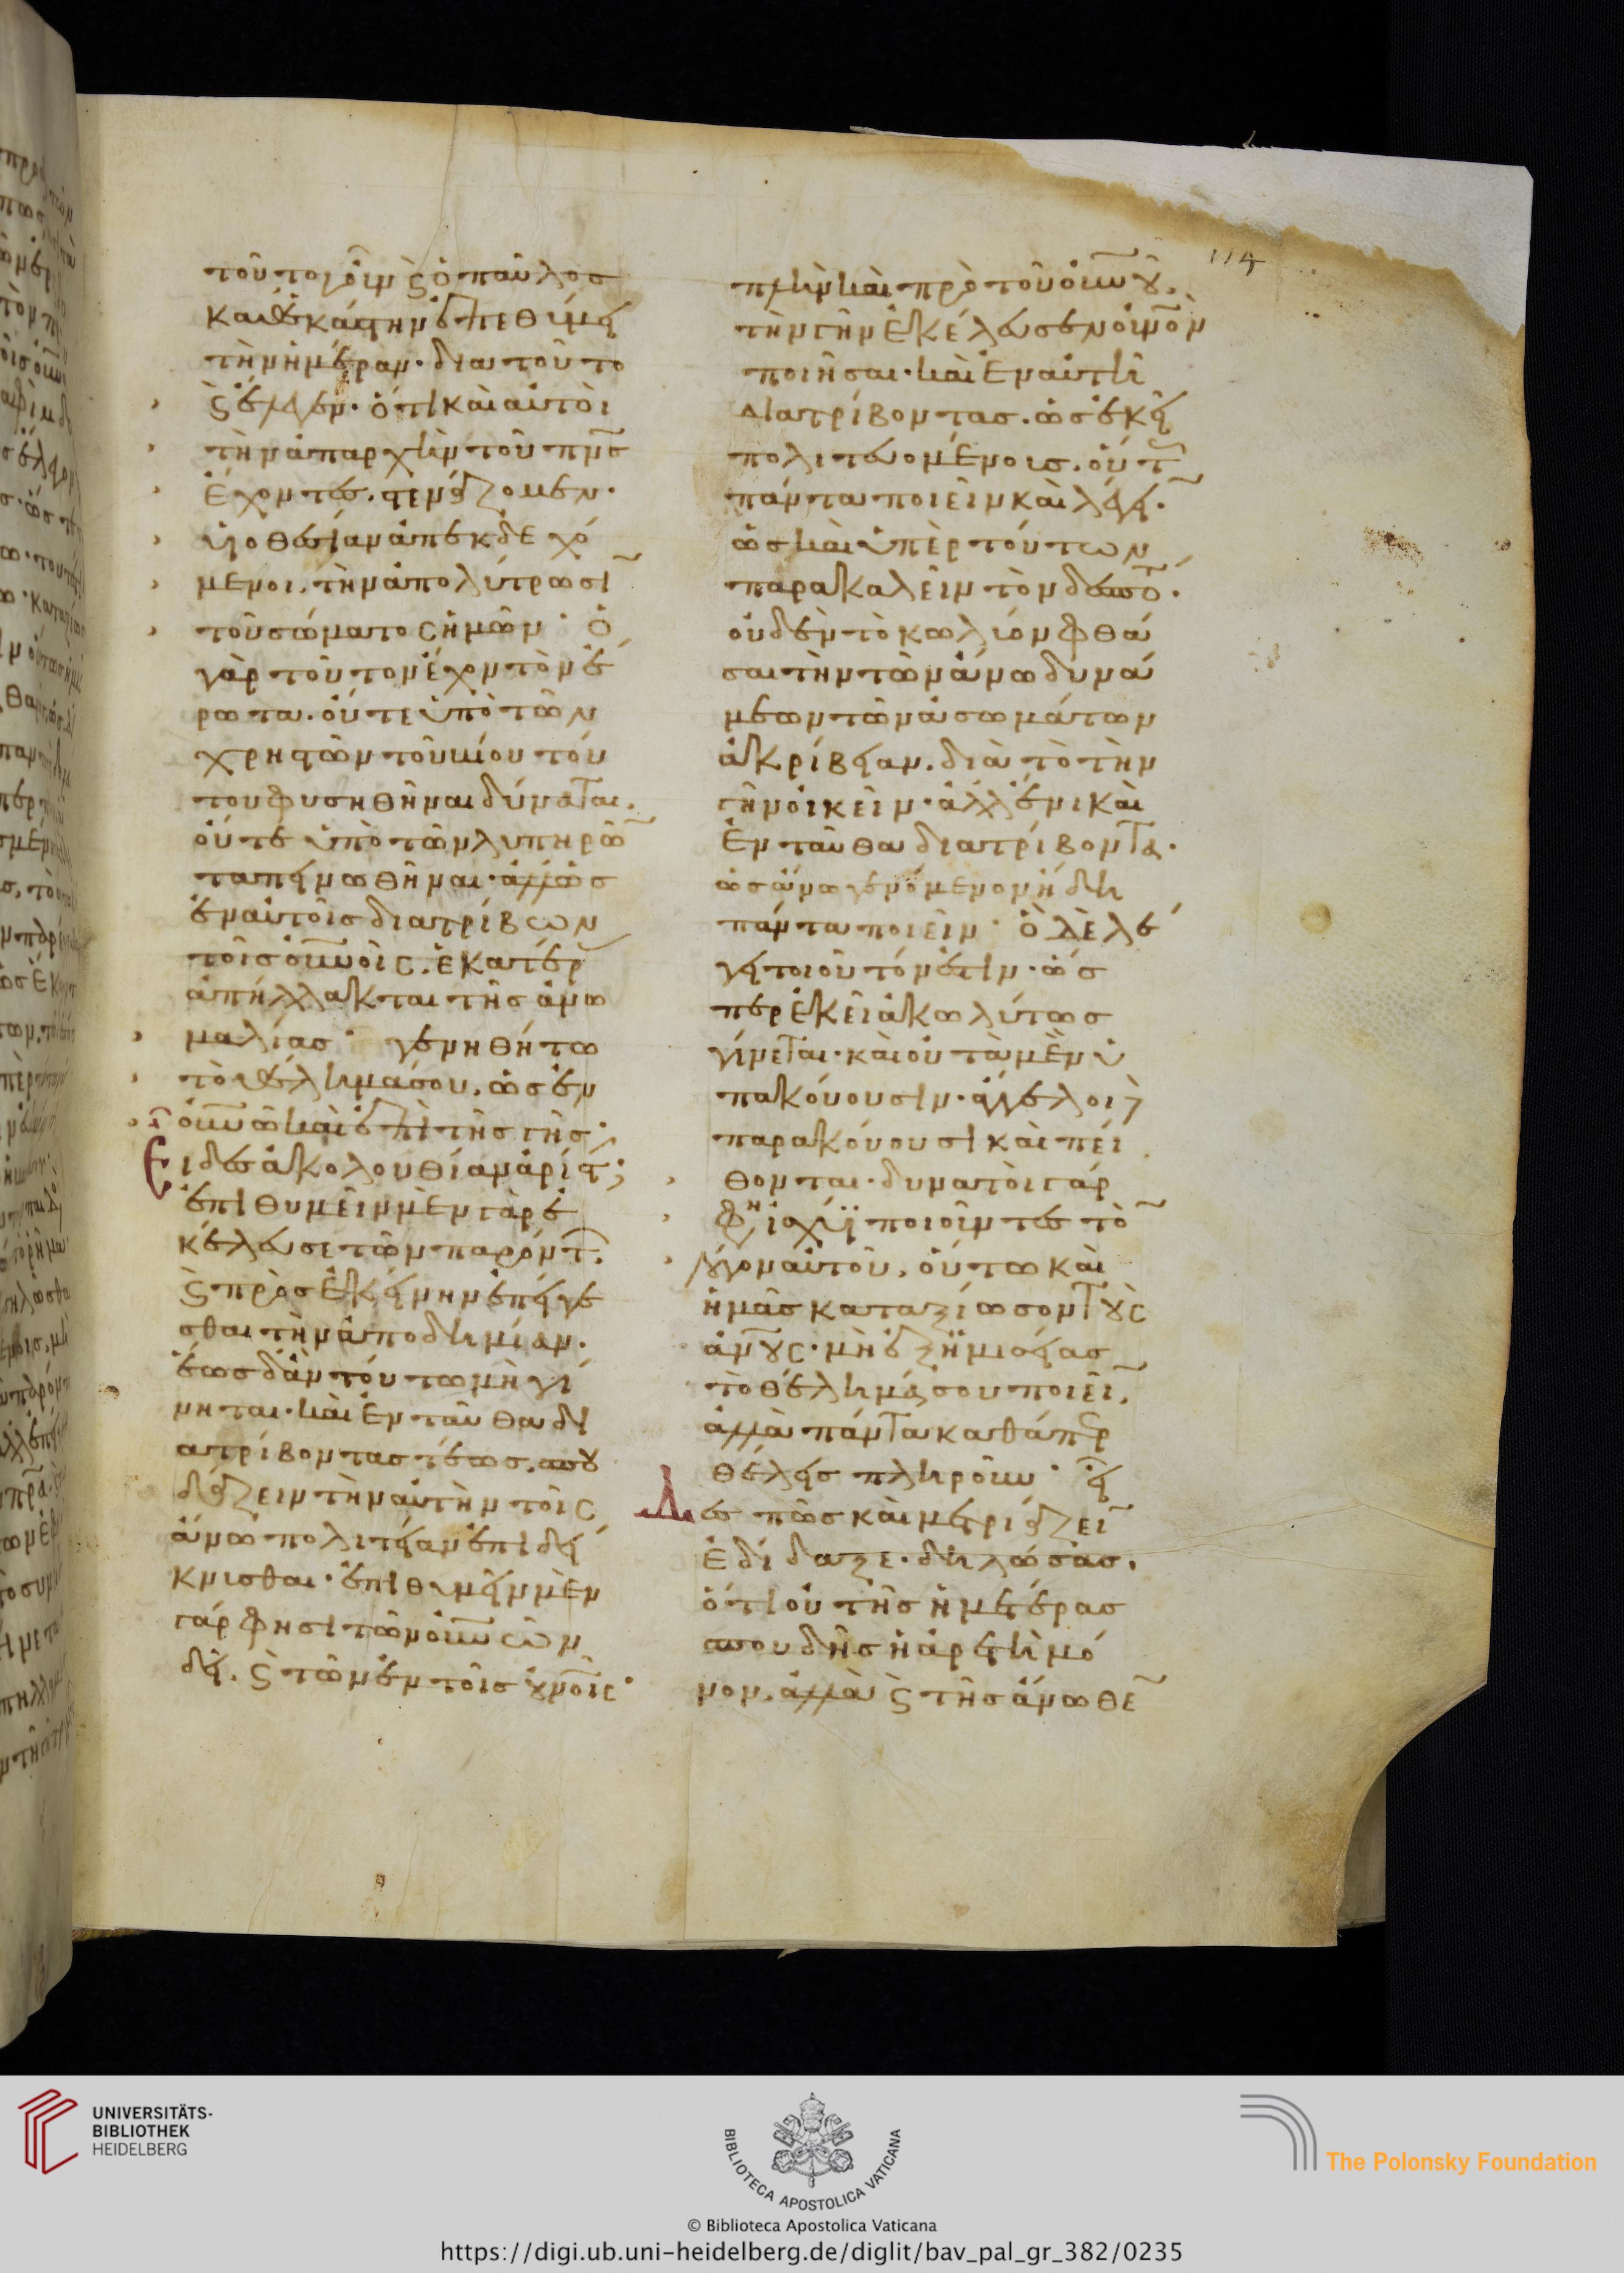 114
τοῦτο γοῦν ϗ ὁ παῦλος
καθεκάστην ἐπεθύμει
τὴν ἡμέραν· διὰ τοῦτο
ϗ ἔλεγεν· ὅτι καὶ αὐτοὶ
τὴν ἀπαρχὴν τοῦ πνς
ἔχοντες, στενάζομεν·
υἱοθεσίαν ἀπεκδεχό
μενοι, τὴν ἀπολύτρωσῑ
τοῦ σώματος ἡμῶν· ὁ
γὰρ τοῦτον ἔχων τὸν ἔ
ρωτα. οὔτε ὑπὸ τῶν
χρηστῶν τοῦ βίου τού
του φυσηθῆναι δύναται,
οὔτε ὑπὸ τῶν λυπηρῶ̄
ταπεινωθῆναι· ἀλλ' ὡς
ἐν αὐτοῖς διατρίβων
τοῖς οὐνοῖς, ἑκατέρ
ἀπήλλακται τῆς ἀνω
μαλίας· γενηθήτω
τὸ θέλημά σου, ὡς ἐν
οὐνῶ καὶ ἐπὶ τῆς γῆς·
Εἶδες ἀκολουθίαν ἀρίστ;
ἐπιθυμεῖν μὲν γὰρ ἐ
κέλευσε τῶν παρόντ̄,
ϗ πρὸς ἐκείνην ἐπείγε
σθαι τὴν ἀποδημίαν·
ἕως δ' ἂν τούτω μὴ γί
νηται· καὶ ἐνταῦθα δι
ατρίβοντας τέως, σπου
δάζειν τὴν αὐτὴν τοῖς
ἄνω πολιτείαν ἐπιδεί
κνυσθαι· ἐπιθυμεῖν μὲν
γάρ φησι τῶν οὐνῶν
δεῖ, ϗ τῶν ἐν τοῖς οὐνοῖς·
πλὴν καὶ πρὸ τοῦ οὐνοῦ,
τὴν γῆν ἐκέλευσεν οὐνὸν
ποιῆσαι· καὶ ἐν αὐτῆ
διατρίβοντας, ὡς ἐκεῖ
πολιτευομένοις, οὕτ̄
πάντα ποιεῖν καὶ λέγειν·
ὡς καὶ ὑπὲρ τούτων
παρακαλεῖν τὸν δεσπο·
οὐδὲν τὸ κωλύον φθά
σαι τὴν τῶν ἄνω δυνά
μεων τῶν ἀσωμάτων
ἀκρίβειαν, διὰ τὸ τὴν
γῆν οἰκεῖν· ἀλλ' ἔνι καὶ
ἐνταῦθα διατρίβοντα·
ὡς ἄνω γενόμενον ἤδη
πάντα ποιεῖν· ὃ δὲ λέ
γει τοιοῦτόν ἐστιν· ὥσ
περ ἐκεῖ ἀκωλύτως
γίνεται· καὶ οὐ τὰ μὲν ὑ
πακούουσιν· ἄγγελοι
παρακούουσι καὶ πεί
θονται· δυνατοὶ γάρ
φη ἰσχύϊ ποιοῦντες τὸ̄
λόγον αὐτοῦ, οὕτω καὶ
ἡμᾶς καταξίωσον τοὺς
ἀνους· μὴ ἐξ ἡμισείας
τὸ θέλημά σου ποιεῖ̄,
ἀλλὰ πάντα καθάπερ
θέλεις πληροῦν· εἶ
δες πῶς καὶ μετριάζεῑ
ἐδίδαξε· δηλώσας,
ὅτι οὐ τῆς ἡμετέρας
σπουδῆς ἡ ἀρετὴ μό
νον, ἀλλὰ ϗ τῆς ἄνωθε̄
UNIVERSITÄTS-
BIBLIOTHEK
HEIDELBERG
BIBLIOTECA APOSTOLICA VATICANA
© Biblioteca Apostolica Vaticana
The Polonsky Foundation
https://digi.ub.uni-heidelberg.de/diglit/bav_pal_gr_382/0235